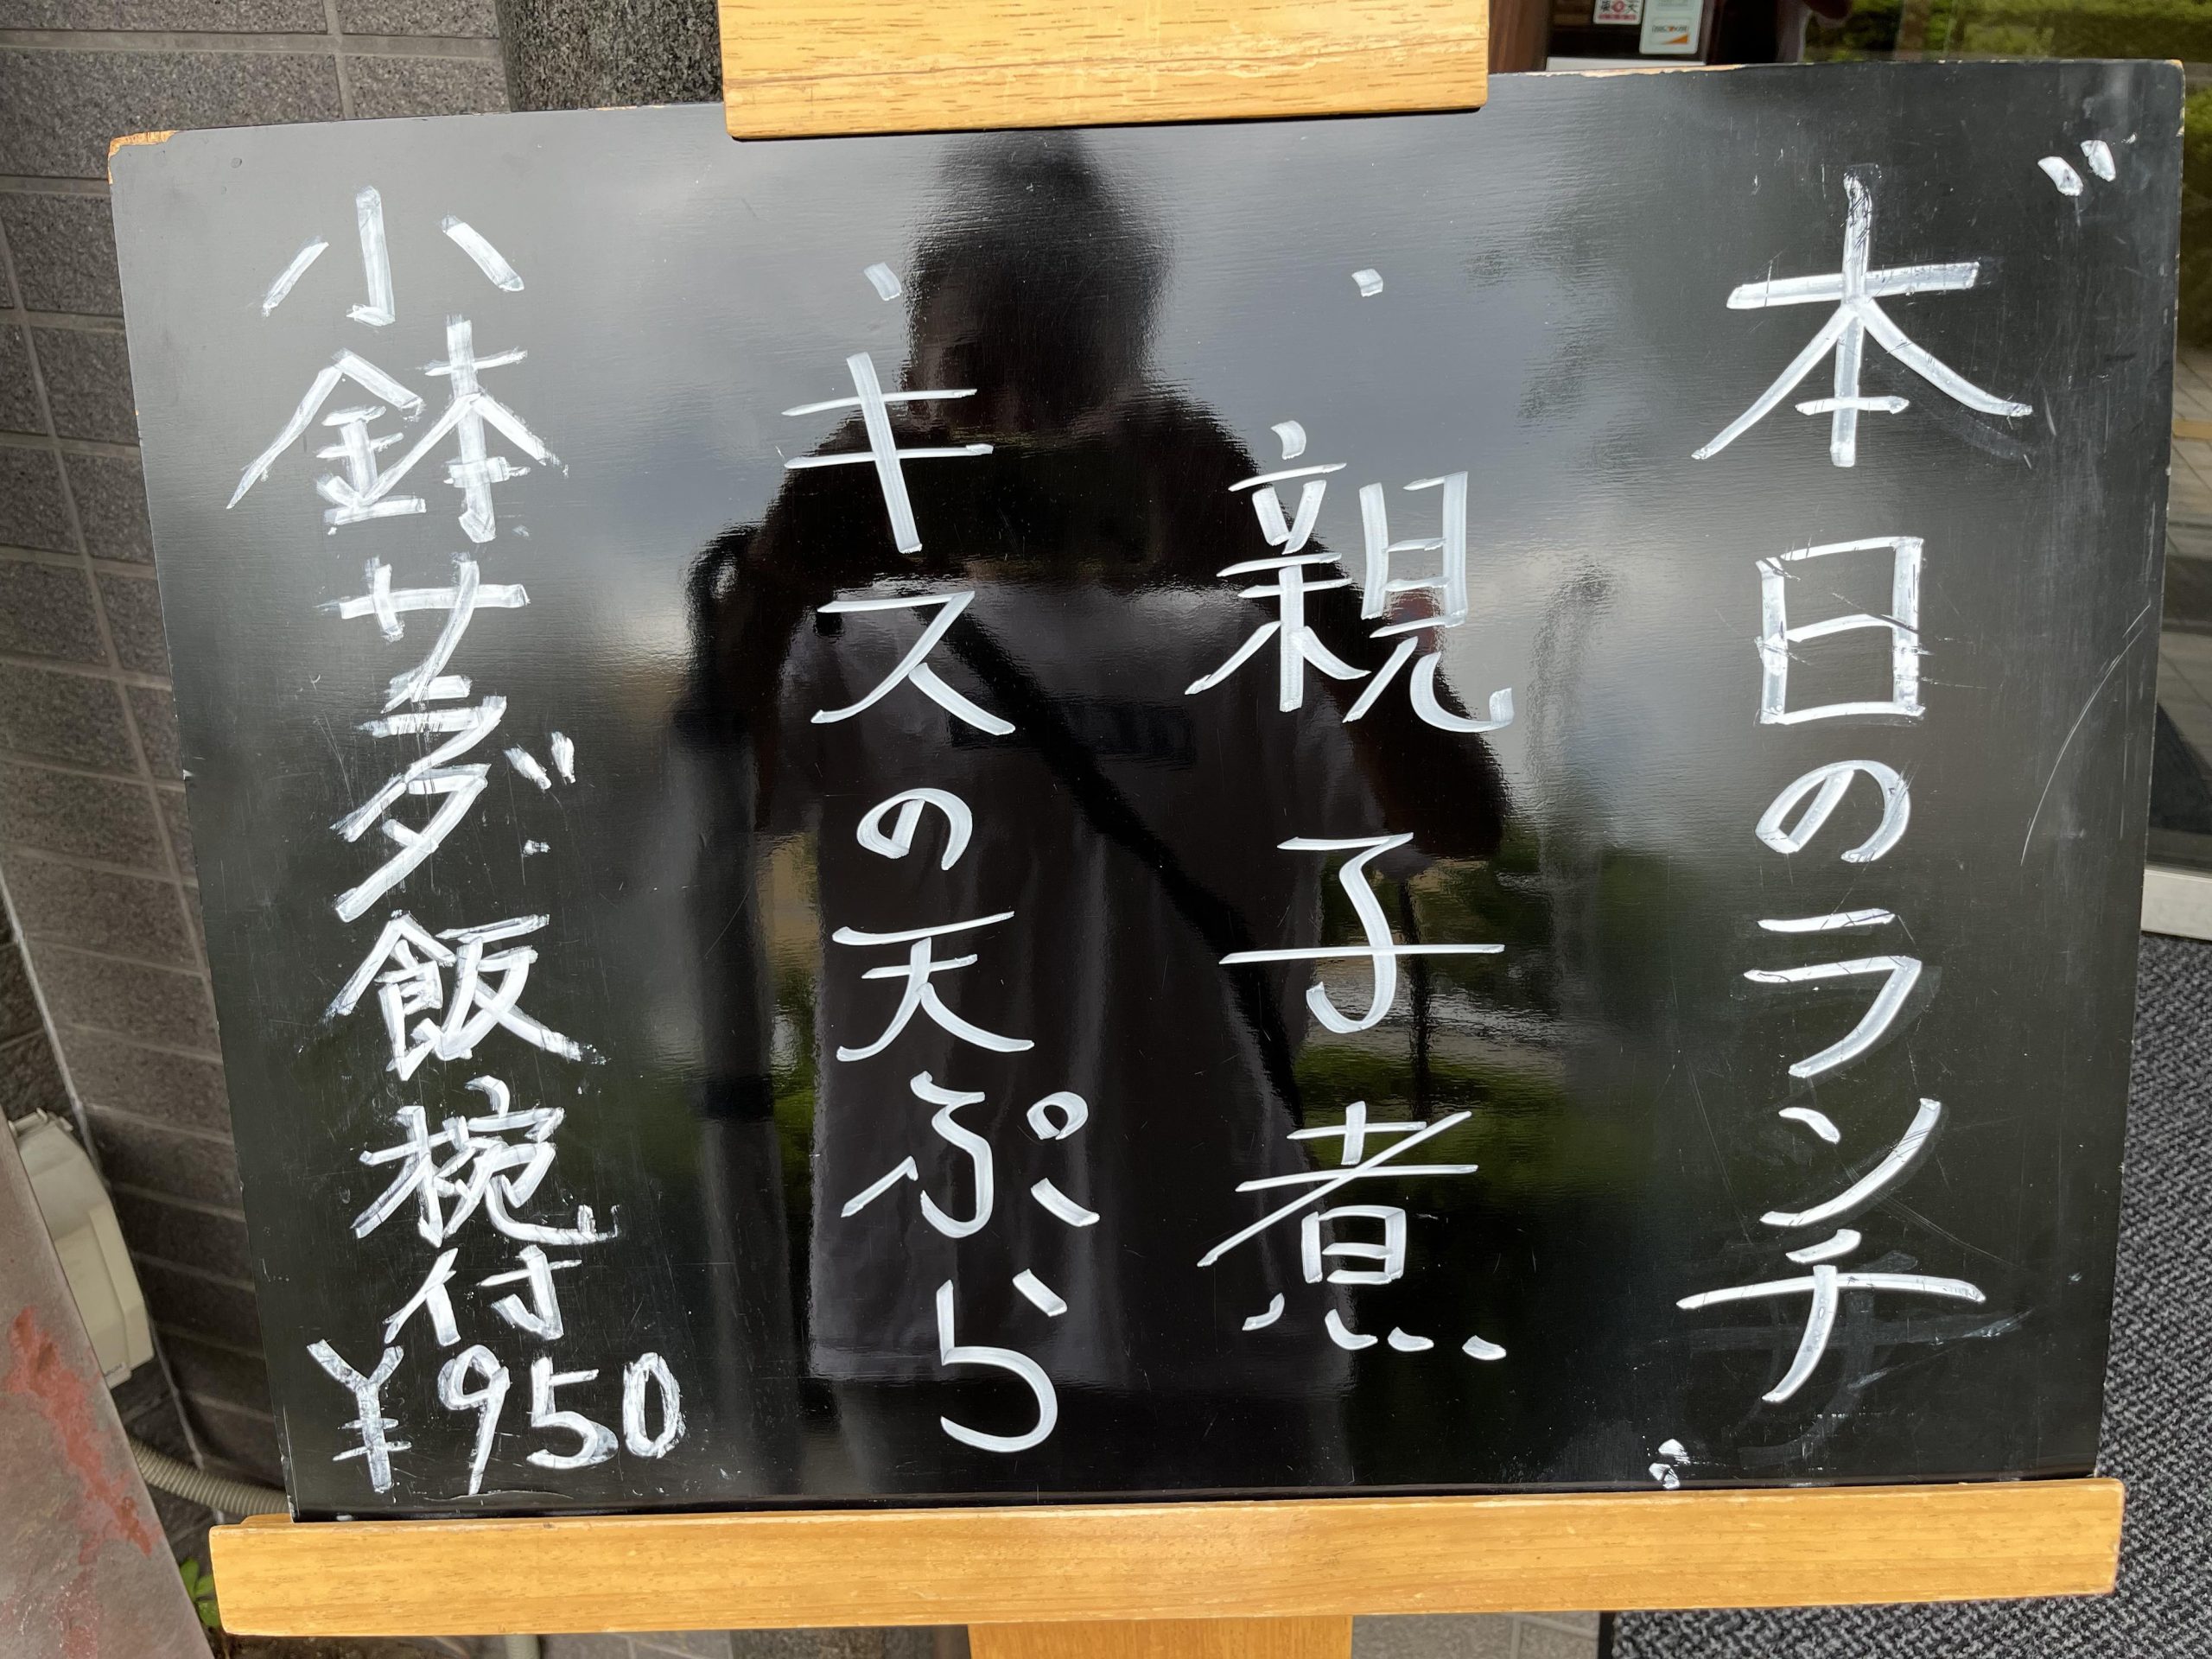 〝本日のランチ〟
・親子煮
・キスの天ぷら
小鉢サラダ飯椀付
¥950